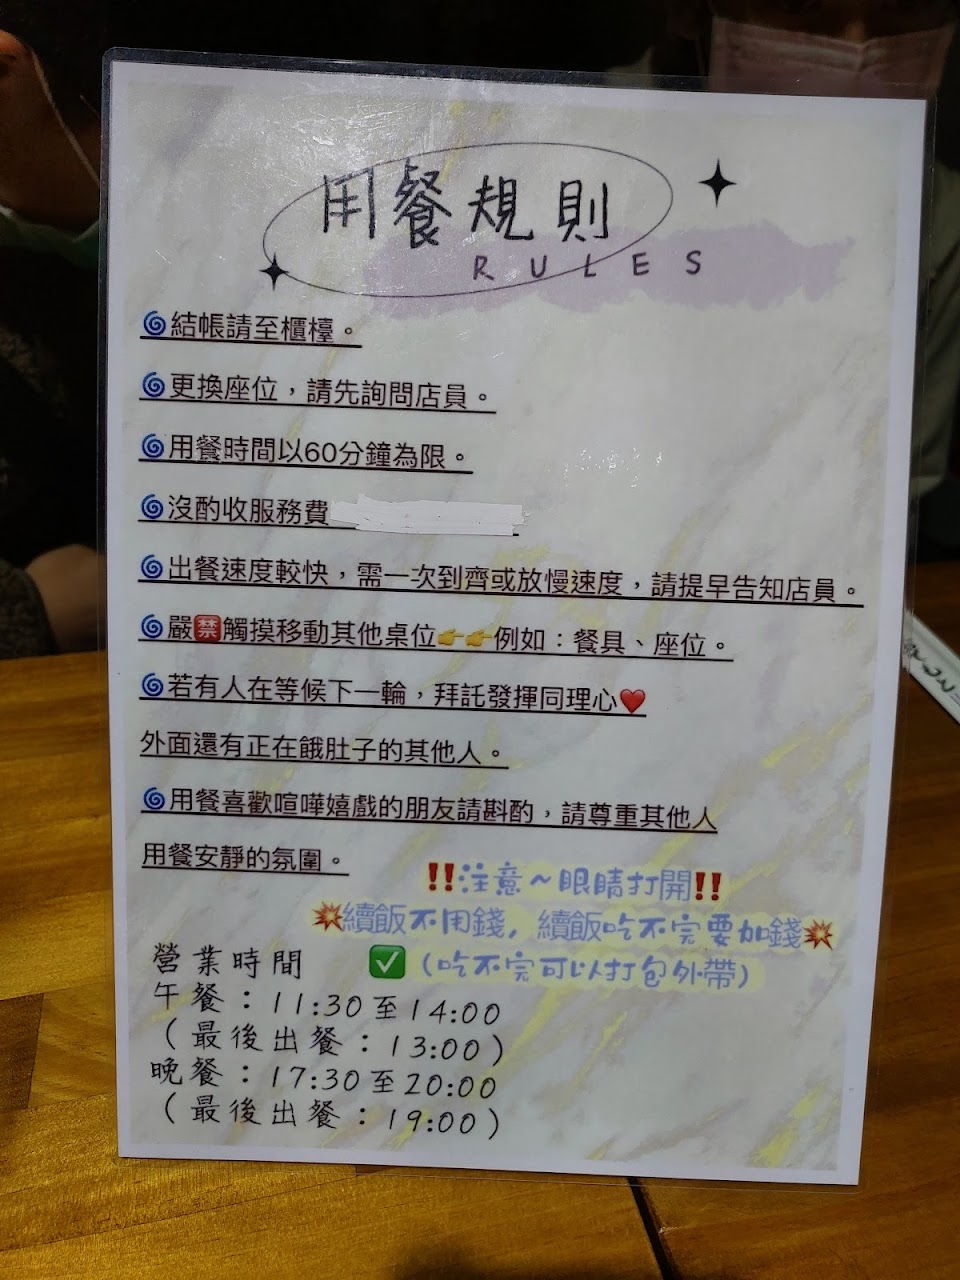 用餐規則
RULES
🌀結帳請至櫃檯。
🌀更換座位，請先詢問店員。
🌀用餐時間以60分鐘為限。
🌀沒酌收服務費
🌀出餐速度較快，需一次到齊或放慢速度，請提早告知店員。
🌀嚴🈲觸摸移動其他桌位👉👉例如：餐具、座位。
🌀若有人在等候下一輪，拜託發揮同理心❤️
外面還有正在餓肚子的其他人。
🌀用餐喜歡喧嘩嬉戲的朋友請斟酌，請尊重其他人
用餐安靜的氛圍。
‼️注意～眼睛打開‼️
💥續飯不用錢，續飯吃不完要加錢💥
✅（吃不完可以打包外帶）
營業時間
午餐：11:30至14:00
（最後出餐：13:00）
晚餐：17:30至20:00
（最後出餐：19:00）